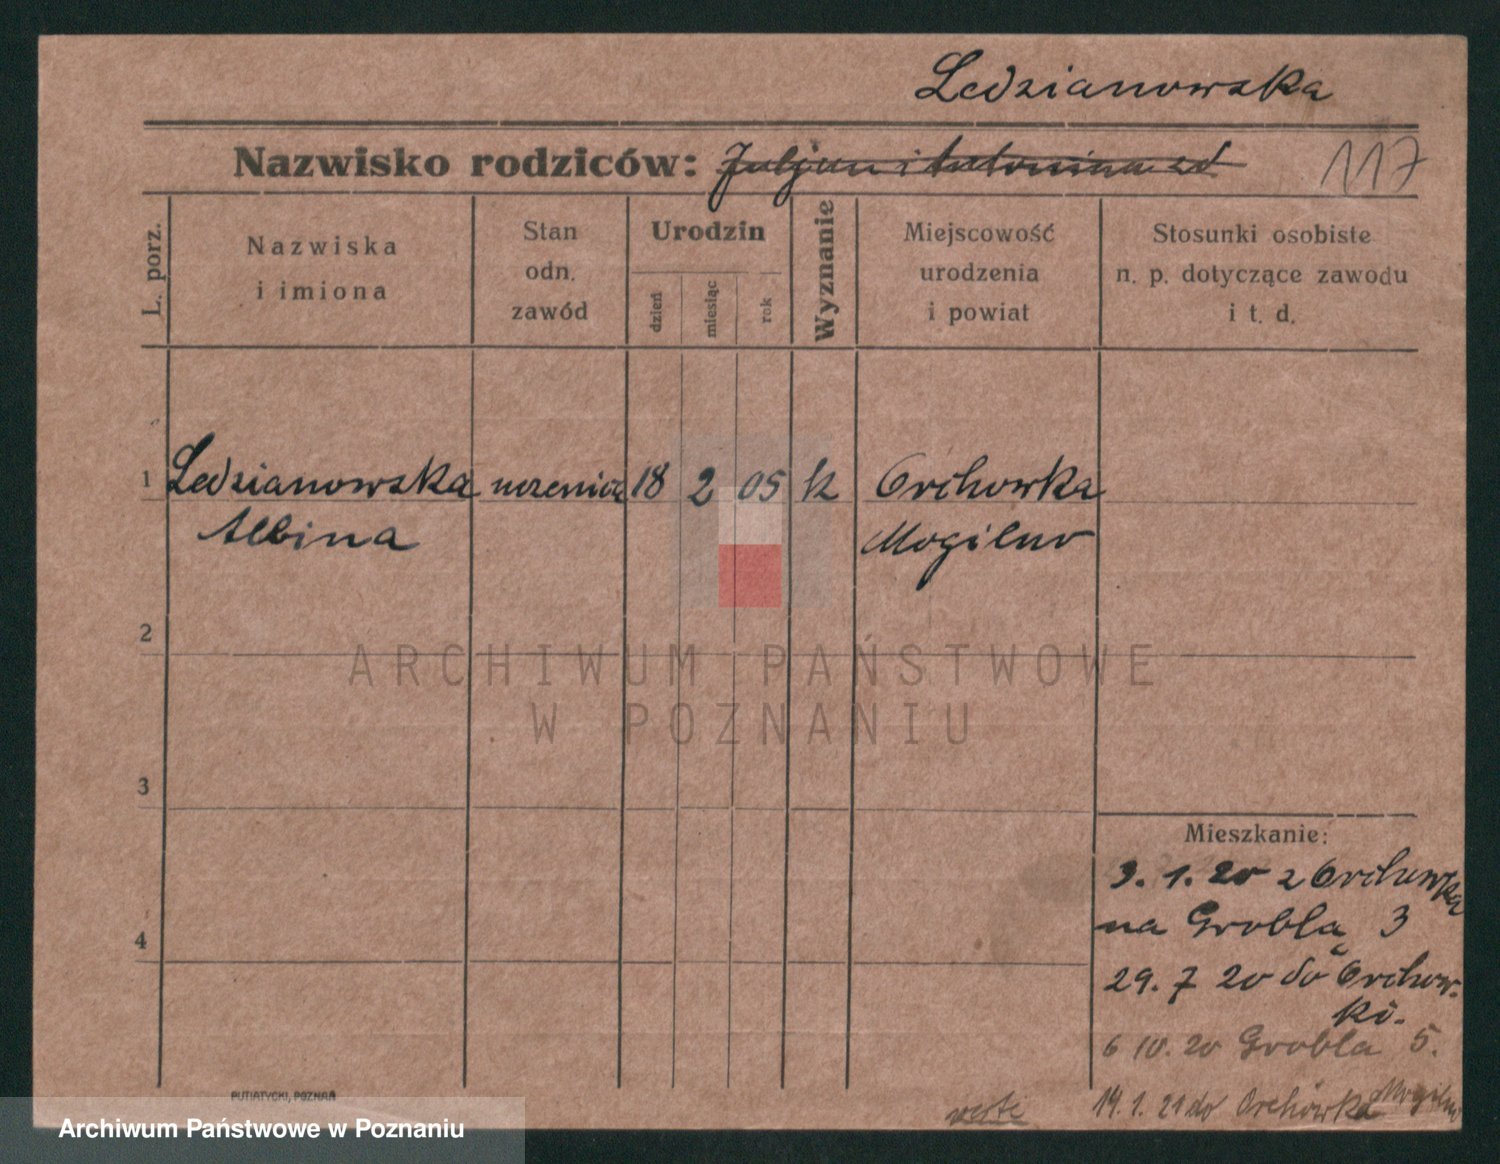 Ledzianowska
Nazwisko rodziców: Juljan i Antonina zd
117
L. porz.
Nazwiska
i imiona
Stan
odn.
zawód
Urodzin
dzień
miesiąc
rok
Wyznanie
Miejscowość
urodzenia
i powiat
Stosunki osobiste
n. p. dotyczące zawodu
i t. d.
1 Ledzianowska uczenica 18 2 05 k Orchowka
Albina Mogilno
2
ARCHIWUM PAŃSTWOWE
W POZNANIU
3
Mieszkanie:
3. 1. 20 z Orchowka
na Groblą 3
4
29. 7 20 do Orchow-
ki.
6 10. 20 Grobla 5.
14. 1. 21 do Orchówka Mogilno
PUTIATYCKI, POZNAŃ
Archiwum Państwowe w Poznaniu